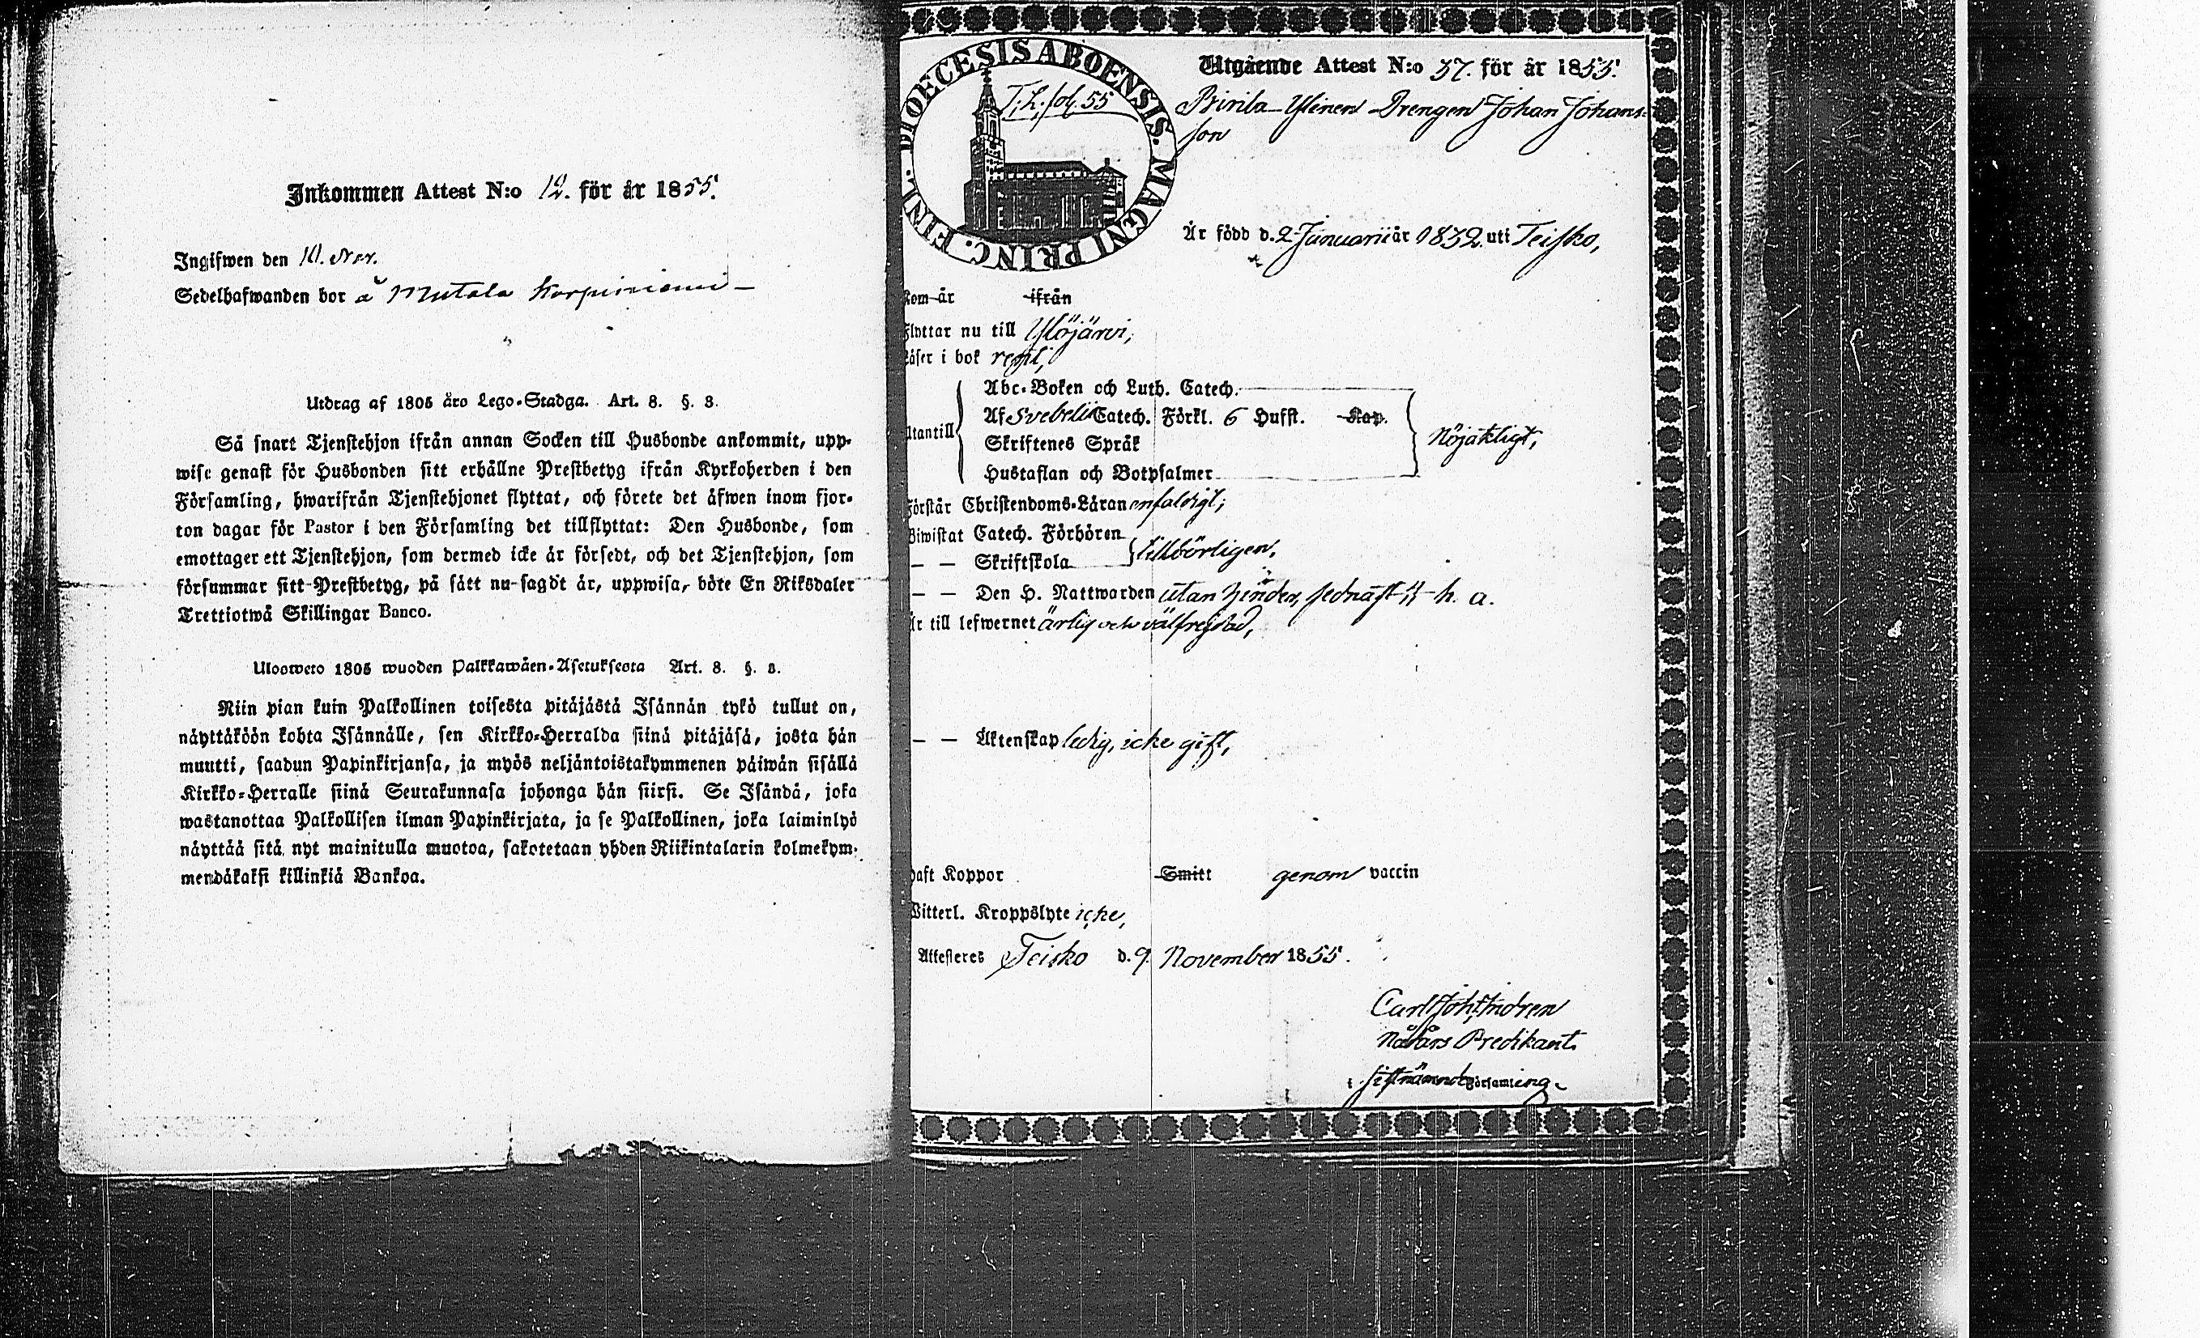 Inkommen Attest N:o 12. för år 1855.
Ingifwen den 10. Nov.
Sedelhafwanden bor å Mutala
Utdrag af 1805 års Lego-Stadga. Art. 8. §. 8.
Så snart Tjenstehjon ifrån annan Socken till Husbonde ankommit, upp-
wise genast för Husbonden sitt erhållne Prestbetyg ifrån Kyrkoherden i den
Församling, hwarifrån Tjenstehjonet flyttat, och förete det äfwen inom fjor-
ton dagar för Pastor i den Församling det tillflyttat: Den Husbonde, som
emottager ett Tjenstehjon, som dermed icke är försedt, och det Tjenstehjon, som
försummar sitt Prestbetyg, på sätt nu sagdt är, uppwisa, böte En Riksdaler
Trettiotwå Skillingar Banco.
Ulosweto 1805 wuoden Palkkawäen-Asetuksesta Art. 8. §. 8.
Niin pian kuin Palkollinen toisesta pitäjästä Isännän tykö tullut on,
näyttäköön kohta Isännälle, sen Kirkko-Herralda siinä pitäjäsä, josta hän
muutti, saadun Papinkirjansa, ja myös neljäntoistakymmenen päiwän sisällä
Kirkko-Herralle siinä Seurakunnasa johonga hän siirsi. Se Isändä, joka
wastanottaa Palkollisen ilman Papinkirjata, ja se Palkollinen, joka laiminlyö
näyttää sitä nyt mainitulla muotoa, sakotetaan yhden Riikintalarin kolmekym-
mendäkaksi killinkiä Bankoa.
DIOECESIS ABOENSIS. MAGNI PRINC. FINL.
T. L. fol. 55
Utgående Attest N:o 57. för år 1855.
Pirila Ylinen Drengen Johan Johans-
son
Är född d. 2 Januarii år 1832 uti Teisko,
Kom år ifrån
Flyttar nu till Ylöjärvi,
Läser i bok
Abc-Boken och Luth. Catech.
Af Svebelii Catech. Förkl. 6 Hufst. Kap.
Utantill
Skriftenes Språk
nöjaktligt,
Hustaflan och Botpsalmer
Förstår Christendoms-Läran enfaldigt,
Biwistat Catech. Förhören
— — Skriftskola
tillbörligen,
— — Den H. Nattwarden utan hinder, sednast h. a.
Är till lefwernet ärlig och välfrejdad,
— — Äktenskap ledig, icke gift,
haft Koppor Smitt genom vaccin
Witterl. Kroppslyte icke,
Attesteres Teisko d. 9 November 1855.
Carl Joh.
Nådårs Predikant
i församling.